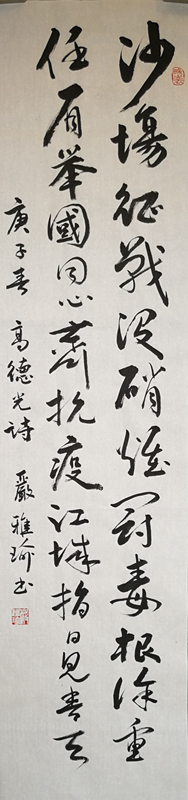 沙場征戰沒硝煙冠毒根除重
任肩舉國同心齊抗疫江城指日見春天
庚子春 高德光詩 嚴雅瑜书